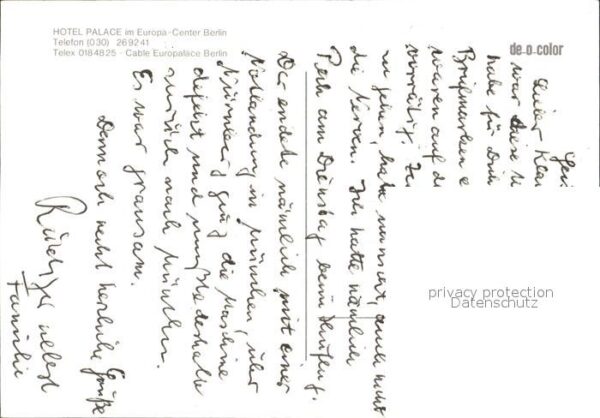 HOTEL PALACE im Europa-Center Berlin
Telefon (030) 269241
Telex 0184825 - Cable Europalace Berlin
de-o-color
war diese
habe für
Briefmarken
waren auf
vorrätig.
zu gehen, habe
die Nerven. Ich hatte nämlich
Pech am Dienstag beim Hinflug.
Der endete nämlich mit einer
Notlandung in München, über
Nürnberg ging die Maschine
defekt und mußte deshalb
zurück nach München.
Es war grausam.
Dennoch recht herzliche Grüße
nebst
Familie
privacy protection
Datenschutz